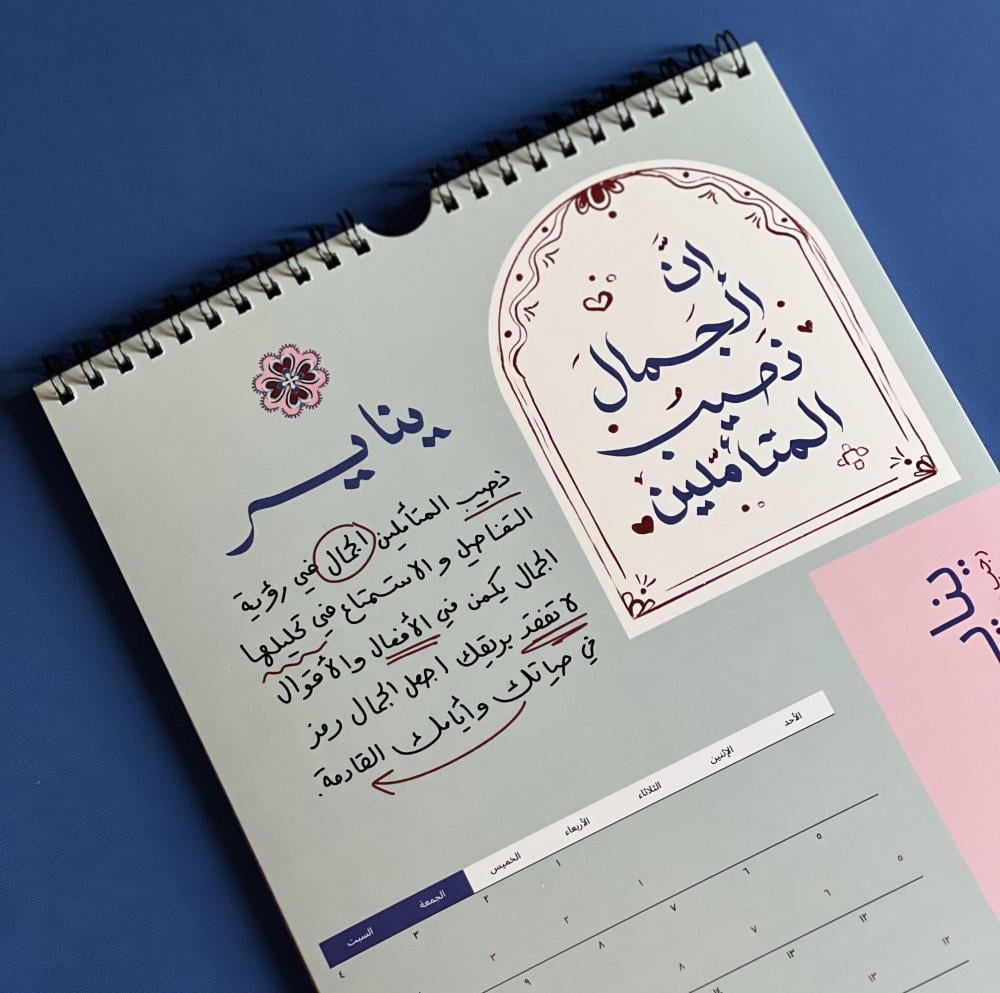 انّ
الجمال
نصيب
المتأملين
يناير
نصيب المتأملين الجمال في رؤية
التفاصيل و الاستمتاع في تحليلها
الجمال يكمن في الأفعال والأقوال
لا تفقد بريقك اجعل الجمال رمز
في حياتك وأيامك القادمة.
الأحد الإثنين الثلاثاء الأربعاء الخميس الجمعة السبت
١ ٢ ٣ ٤
١ ٢ ٣
٥ ٦ ٧ ٨ ٩
٥ ٦ ٧ ٨
١٢ ١٣ ١٤
١٢ ١٣